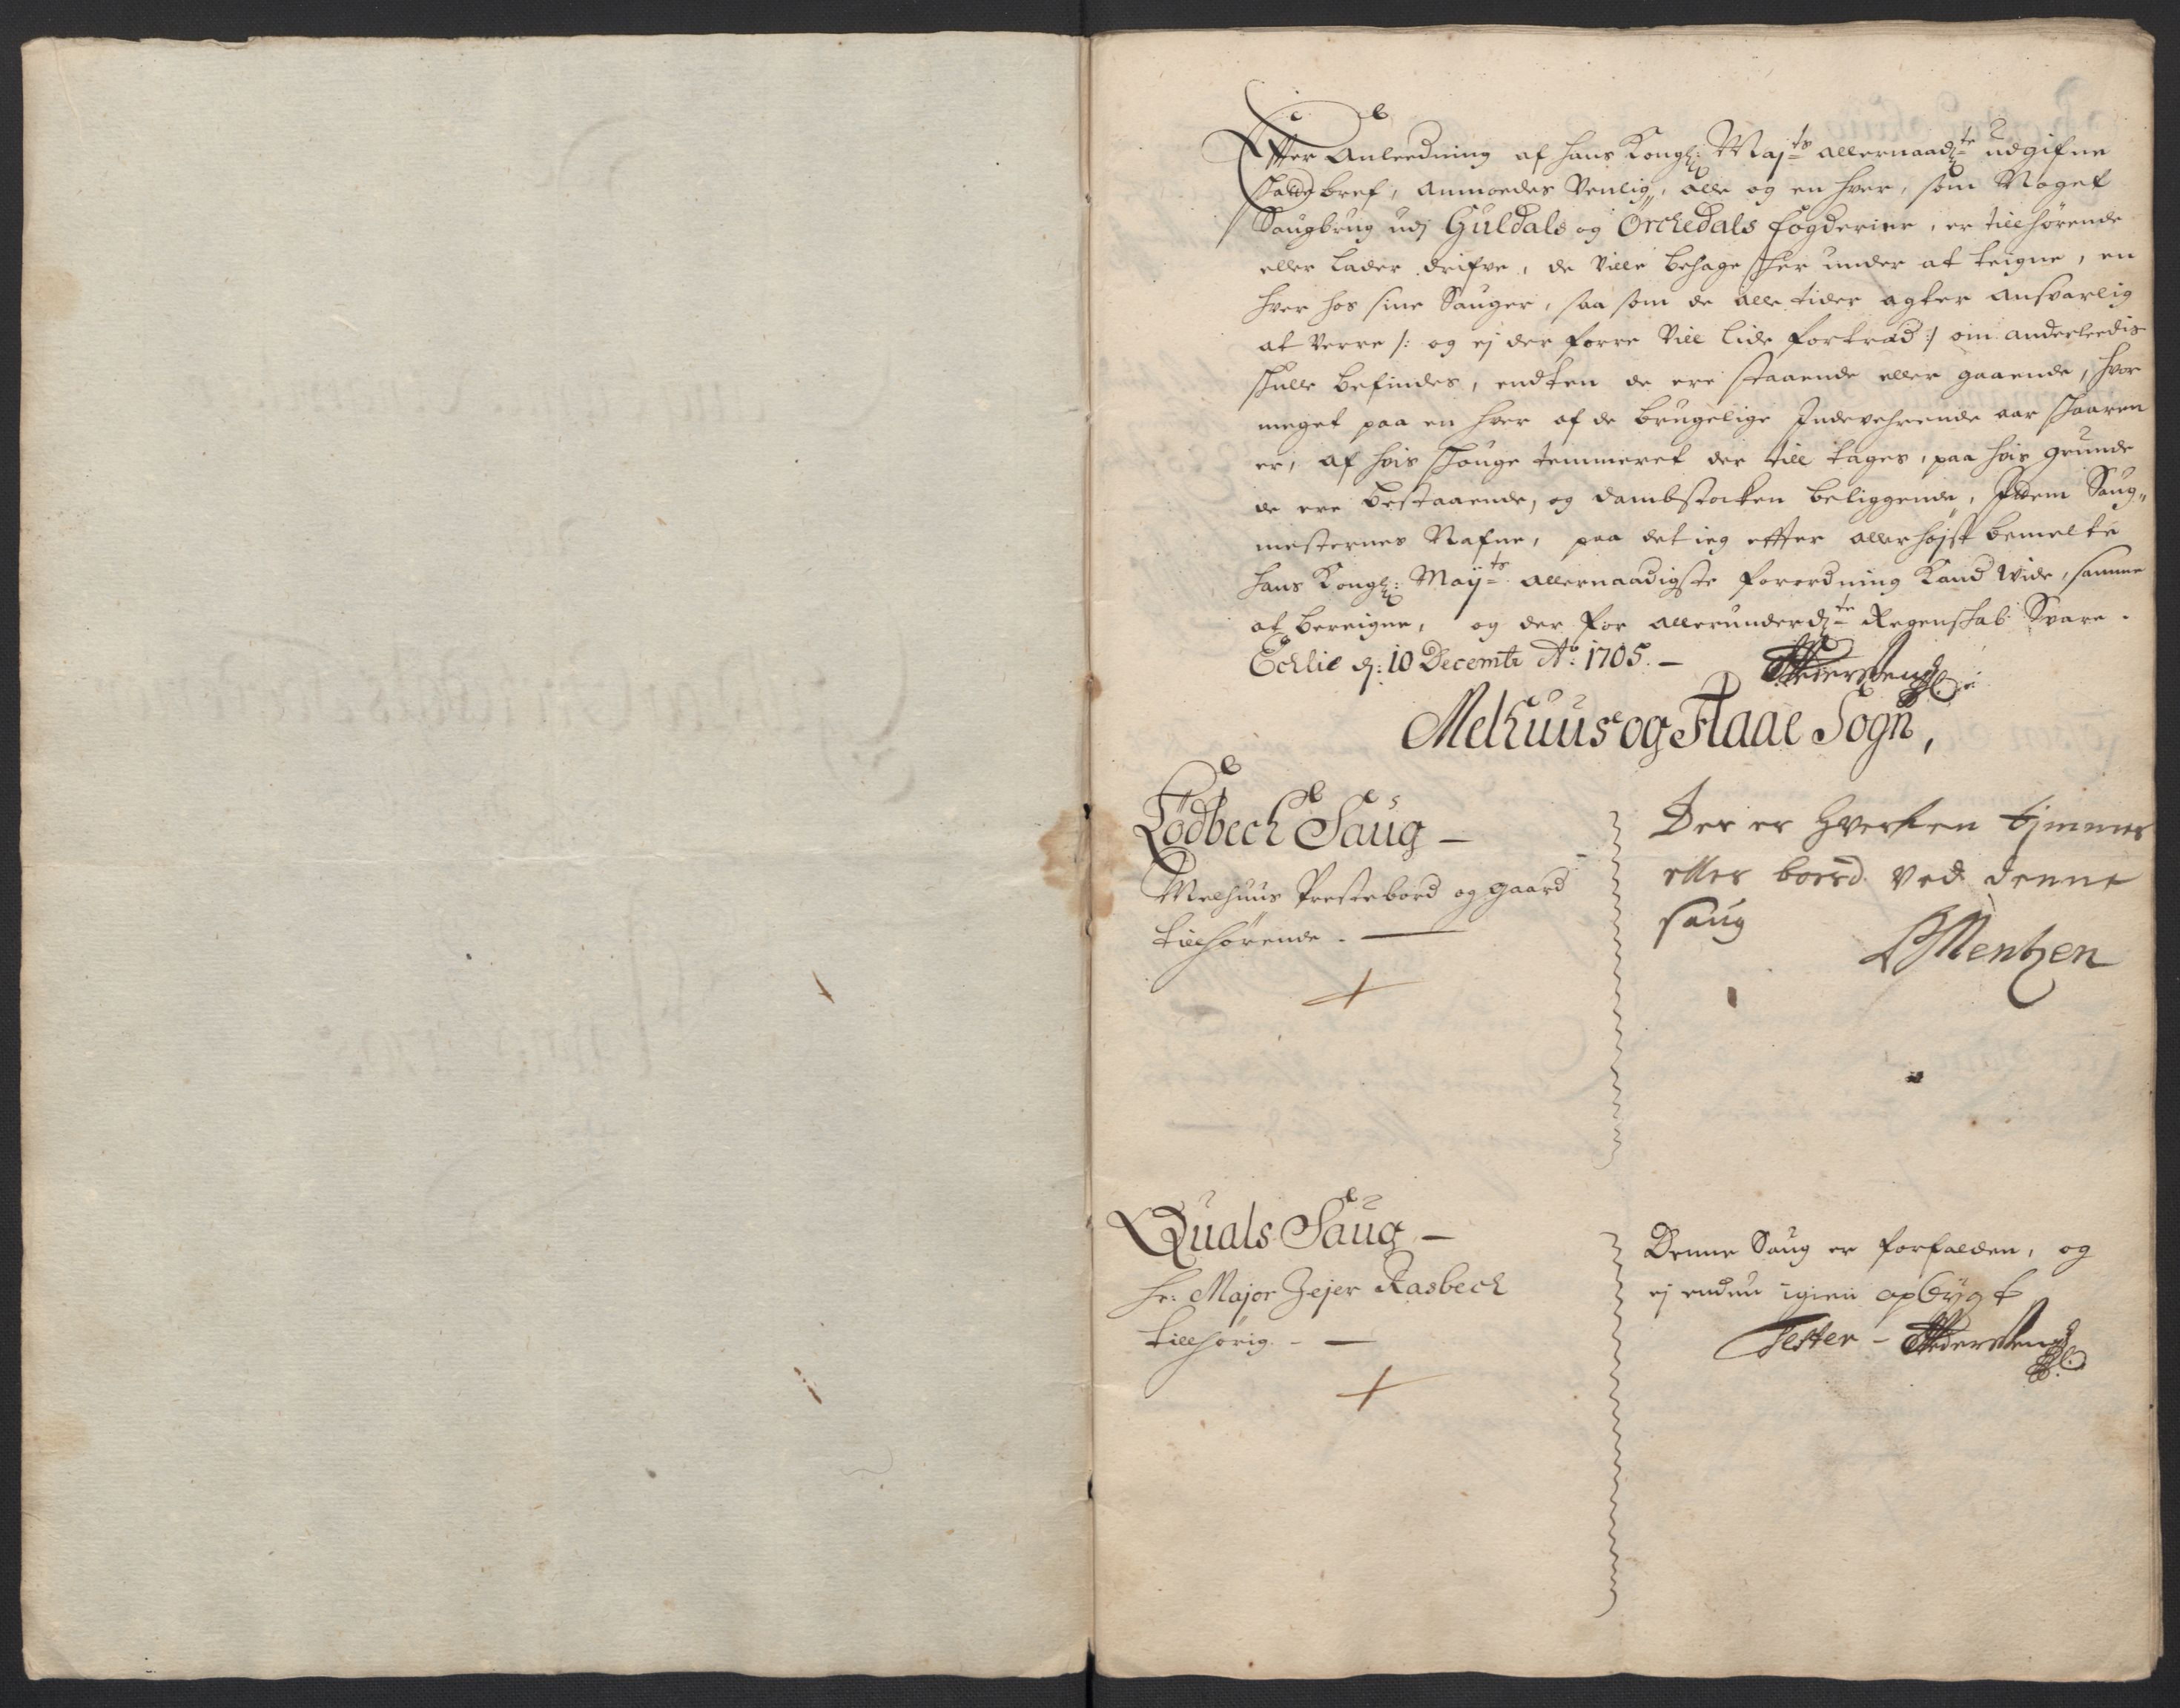 Effter Anleedning af hans Kongl: Maj:ts allernaad:te udgifne
schatte bref, anmoedes Venlig, alle og en hver, som Noget
Saugbrug udj Guldals og Örchedals fogderier, er tillhørende
eller lader drifve, de Ville behage her under at teigne, en
hver hos sine Sauger, saa som de alle tider agter ansvarlig
at verre /: og ej der forre Vill lide fortræd :/ om anderleedis
skulle befindes, endten de ere staaende eller gaaende, hvor
meget paa en hver af de brugelige Indevehrende aar skaaren
er, af hvis skouge temmeret der till tages, paa hvis grunde
de ere bestaaende, og dambstocken beliggende, Jttem Saug„
mesternes Nafne, paa det ieg effter allerhøjst bemelte
hans Kongl: Maij:ts allernaadigste forordning Kand Vide, samme
at bereigne, og der for allerunderd:te Regenskab Svare.
Echlie d: 10 Decembr Ao: 1705. –
Melhuus og Flaae Sogn,
Lødbech Saug –
Melhuus Prestebord og gaard
tillhørende. –
Der er Hverken tjmmer
eller boerd ved denne
saug
Mentzen
Quals Saug –
Hr: Major Jejer Rasbech
tillhørig. – –
Denne Saug er forfalden, og
ej endnu igien opbÿgt
Tester –